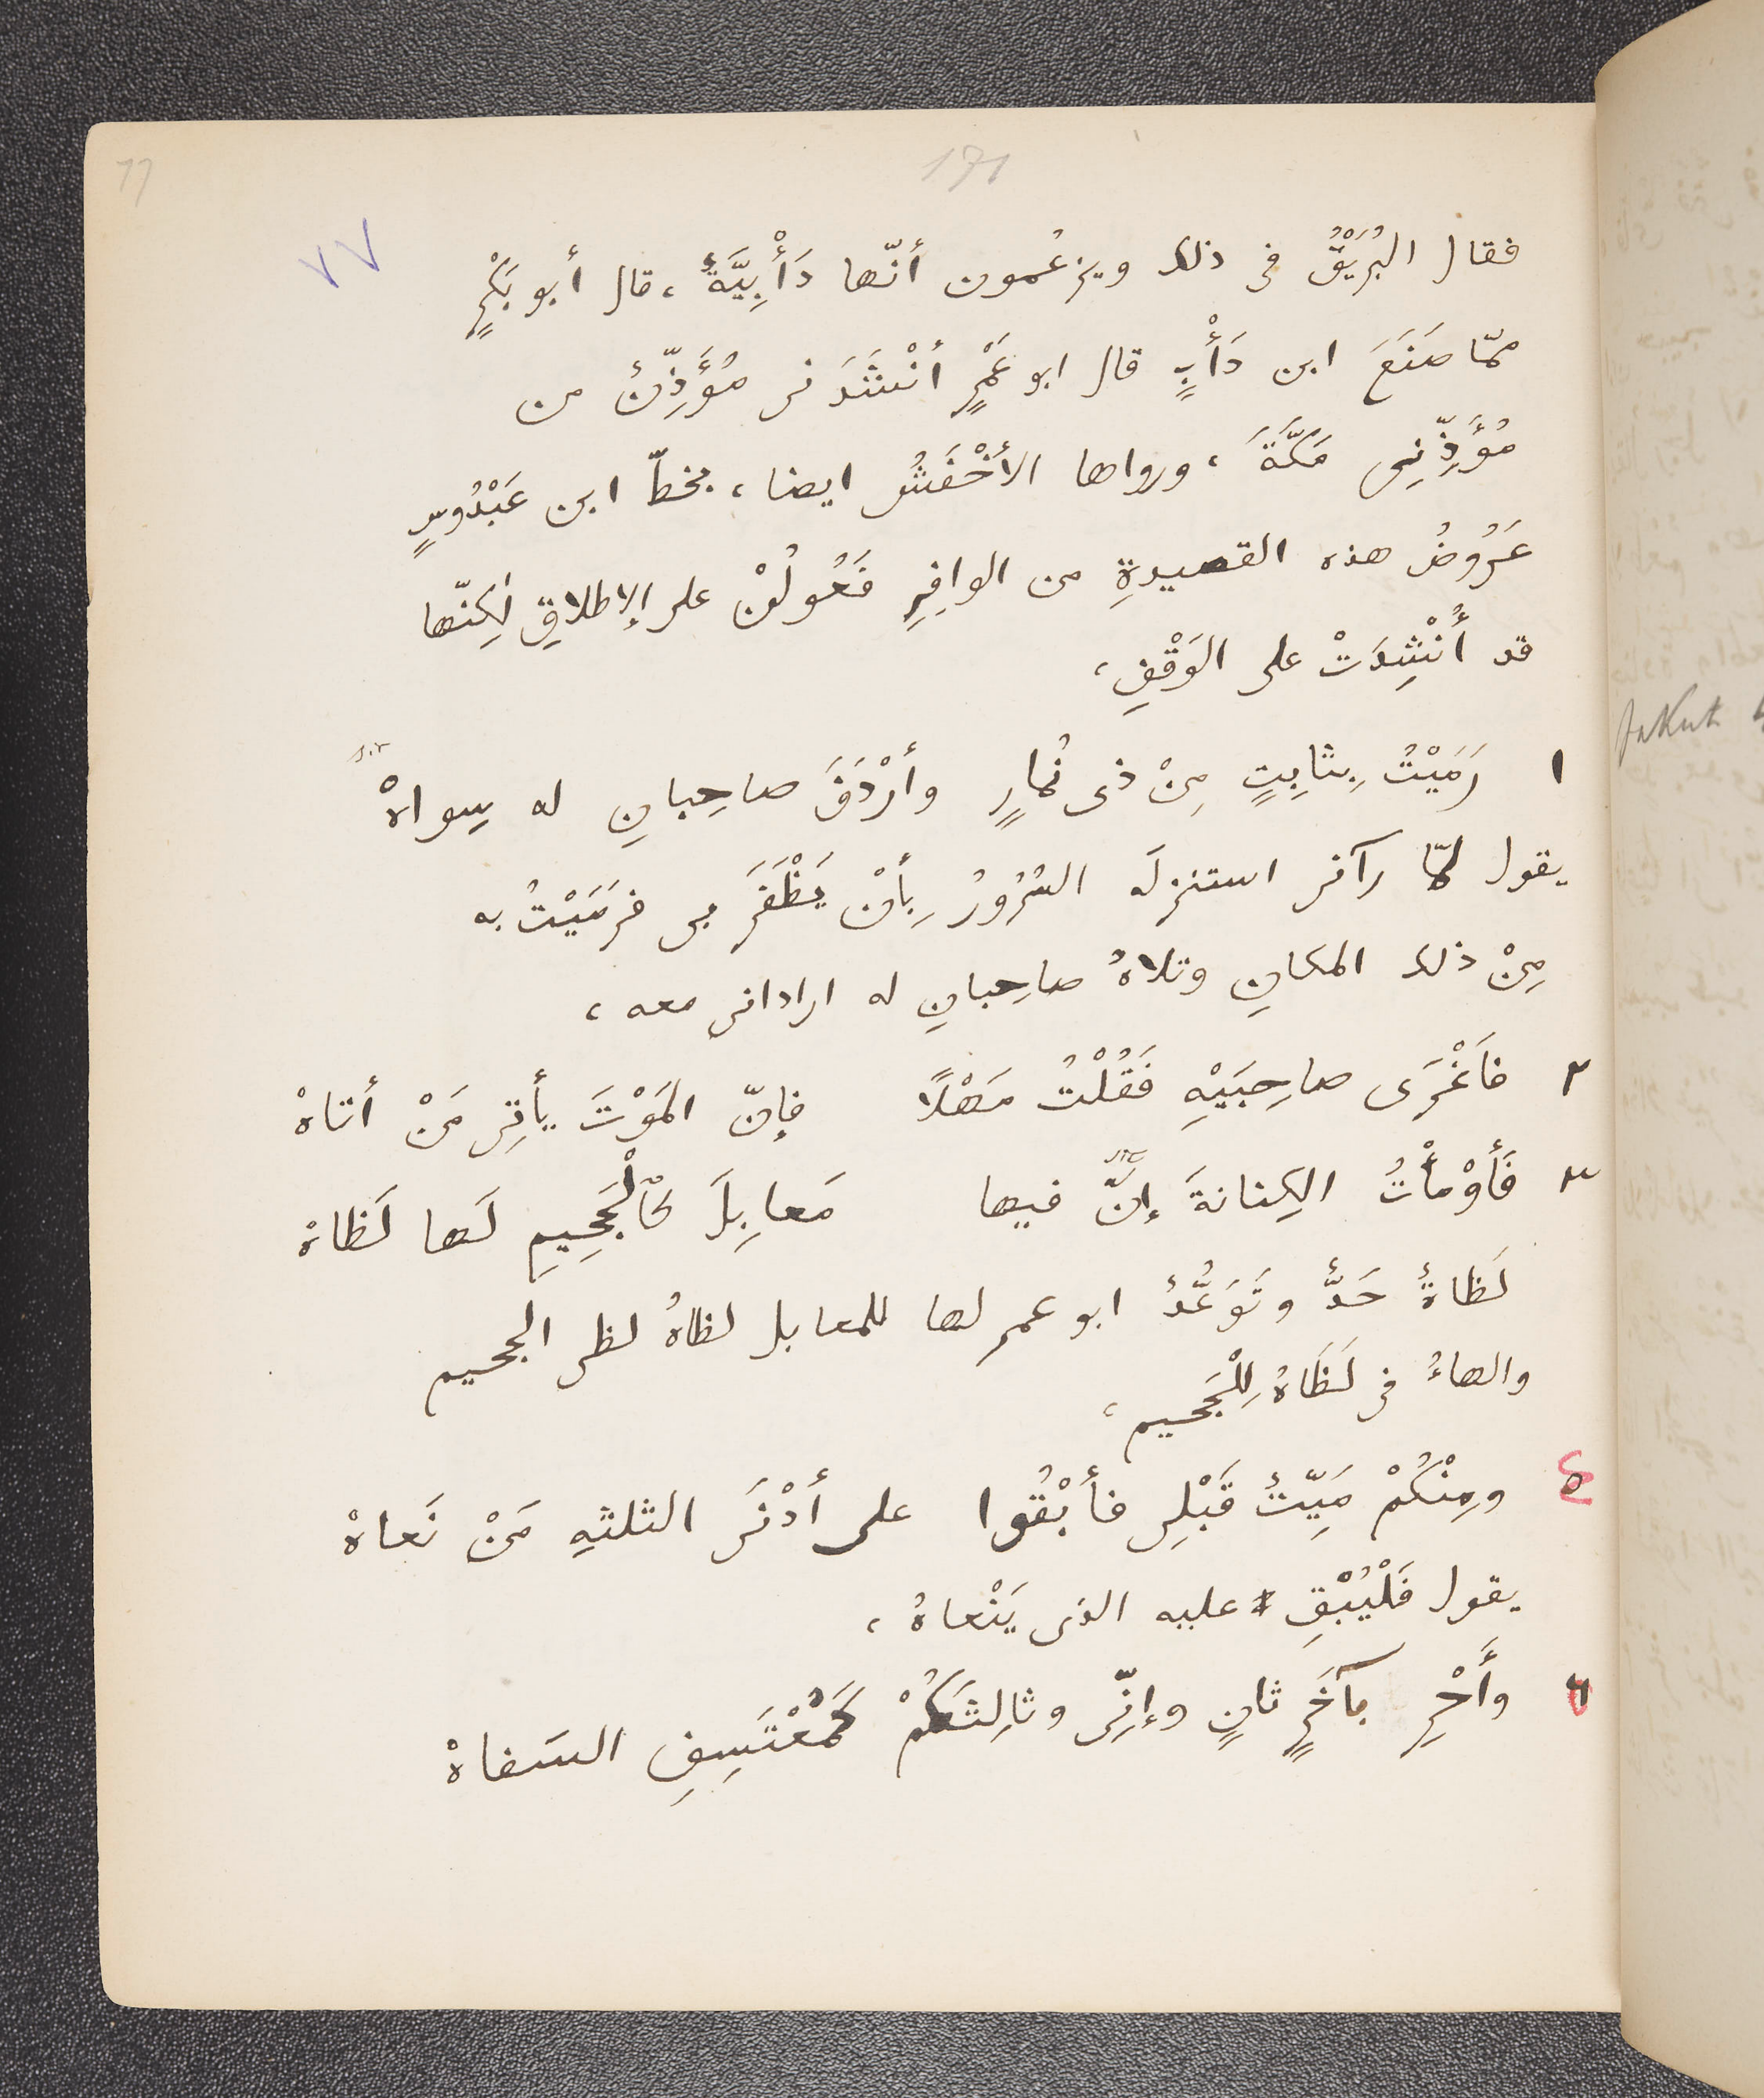 171
77
٧٧
فقال البُرَيْقُ فى ذلك ويزعُمون أنّها دَأْبِيَّةٌ، قال أبو بَكْرٍ
ممّا صَنَعَ ابن دَأْبٍ قال ابو عَمْرٍ أنْشَدَنى مُؤَذِّنٌ من
مُؤَذِّنِى مَكَّةَ، ورواها الأخْفَشُ ايضا، بخطّ ابن عَبْدُوسٍ
عَرُوضُ هذه القصيدةِ من الوافِرِ فَعُولُنْ على الإطلاقِ لٰكِنّها
قد أُنْشِدَتْ على الوَقْفِ،
١ رَمَيْتُ بِثابِتٍ مِنْ ذى نُمارٍ وأرْدَفَ صاحِبانِ له سِواهْ
يقول لمّا رآنى استنزلَه السُرُورُ بِأنْ يَظْفَرَ بى فرَمَيْتُ به
مِنْ ذلك المكانِ وتلاهُ صاحِبانِ له ارادانى معه،
٢ فَأغْرَى صاحِبَيْهِ فَقُلْتُ مَهْلًا فإنّ المَوْتَ يأتِى مَنْ أتاهْ
٣ فَأوْمَأْتُ الكِنانةَ إنَّ فيها مَعابِلَ كَالْجَحِيمِ لَها لَظاهْ
لَظاةٌ حَدٌّ وتَوَعُّدٌ ابو عمر لها للمعابل لظاهُ لظى الجحيم
والهاءُ فى لَظَاهُ لِلْجَحيم،
ومِنْكُمْ مَيِّتٌ قَبْلِى فأبْقُوا على أدْنَى الثلثهِ مَنْ نَعاهْ
يقول فَلْيُبْقِ عليه الذى يَنْعاهُ،
وأَحْرِ بآخَرٍ ثانٍ وإنّى وثالِثَكُمْ كَمُعْتَسِفِ السَفاهْ